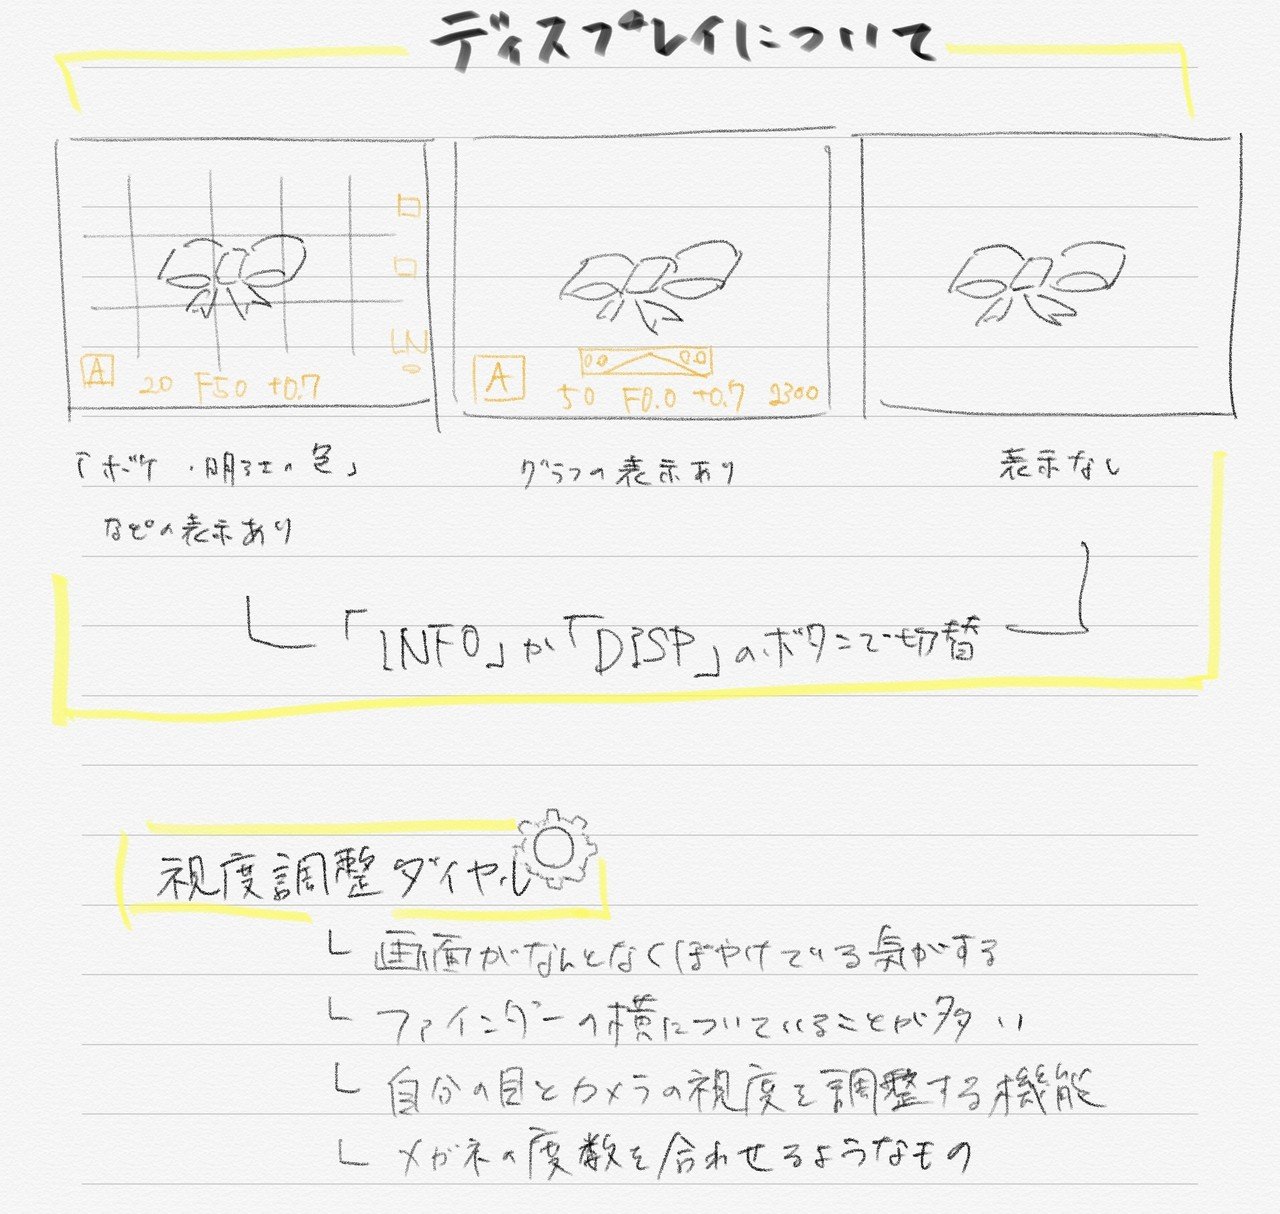 ディスプレイについて
A 20 F5.0 +0.7
A 50 F0.0 +0.7 2300
「ボケ・明るさの色」
などの表示あり
グラフの表示あり
表示なし
「INFO」か「DISP」のボタンで切替
視度調整ダイヤル
画面がなんとなくぼやけている気がする
ファインダーの横についていることが多い
自分の目とカメラの視度を調整する機能
メガネの度数を合わせるようなもの